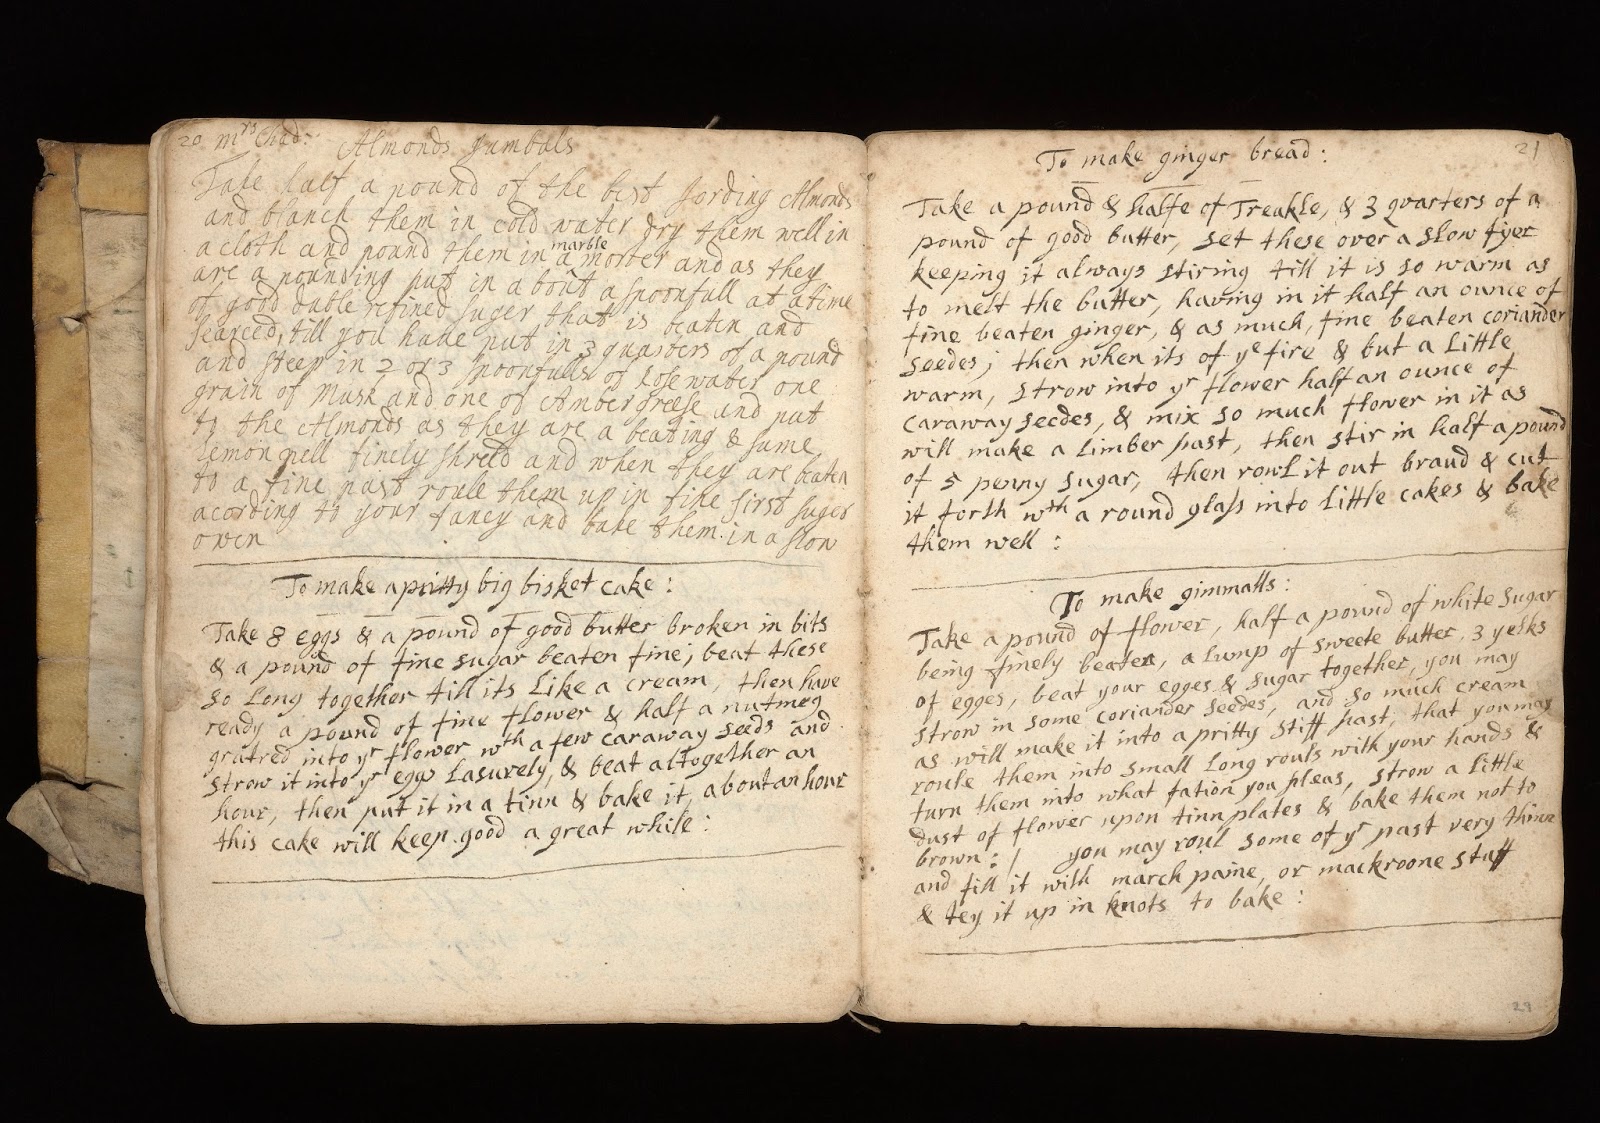 20 mrs Chad: Almonds Jumbals
Take half a pound of the best Jording Almonds
and blanch them in cold water dry them well in
a cloth and pound them in a marble morter and as they
are a pounding put in about a spoonfull at a time
of good duble refined suger that is beaten and
searced, till you have put in 3 quarters of a pound
and steep in 2 or 3 spoonfulls of Rosewater one
grain of Musk and one of Ambergreese and put
to the Almonds as they are a beating & sume
lemon pell finely shred and when they are beaten
to a fine past roule them up in fine sifst suger
acording to your fancy and bake them in a slow
oven
To make a pritty big bisket cake:
Take 8 eggs & a pound of good butter broken in bits
& a pound of fine sugar beaten fine; beat these
so Long together till its Like a cream, then have
ready a pound of fine flower & half a nutmeg
gratred into yr flower wth a few caraway seeds and
strow it into yr eggs Lasurely, & beat altogether an
hour, then put it in a tinn & bake it, about an hour
this cake will keep good a great while:
21
To make ginger bread:
Take a pound & halfe of Treakle, & 3 quarters of a
pound of good butter, set these over a slow fyer
keeping it always stiring till it is so warm as
to melt the butter, having in it half an ounce of
fine beaten ginger, & as much, fine beaten coriander
seedes; then when its of ye fire & but a Little
warm, strow into yr flower half an ounce of
caraway seedes, & mix so much flower in it as
will make a Limber past, then stir in half a pound
of 5 penny sugar, then rowl it out braud & cut
it forth wth a round glass into Little cakes & bake
them well:
To make gimmalls:
Take a pound of flower, half a pound of white sugar
being finely beaten, a Lump of sweete butter, 3 yelks
of egges, beat your egges & sugar together, you may
strow in some coriander seedes, and so much cream
as will make it into a pritty stiff past, that you may
roule them into small Long rouls with your hands &
turn them into what fation you pleas, strow a Little
dust of flower upon tinn plates & bake them not to
brown: / you may roul some of yr past very thinn
and fill it with march paine, or mackroone stuff
& tey it up in knots to bake:
29